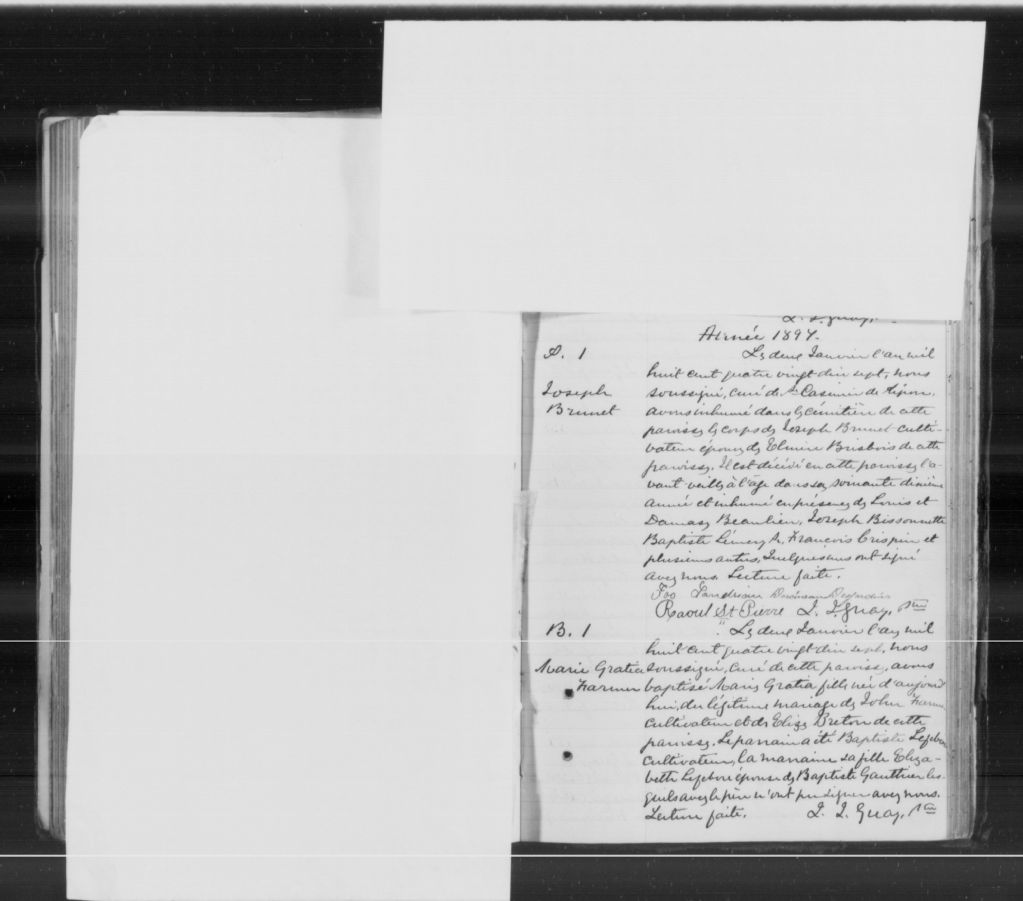 Année 1897.
S. 1
Joseph
Brunet
Le deux Janvier l'an mil
huit cent quatre vingt dix sept, nous
soussigné, curé de St Casimir de Ripon,
avons inhumé dans le cimétière de cette
paroisse le corps de Joseph Brunet culti-
vateur époux de Elmire Brisbois de cette
paroisse. Il est décédé en cette paroisse l'a-
vant veille à l'âge dans sa soixante dixième
année et inhumé en présence de Louis et
Damase Beaulieu, Joseph Bissonnette
Baptiste François Crispin et
plusieurs autres. Quelques uns ont signé
avec nous. Lecture faite.
Raoul St Pierre L. I. Guay, Ptre
B. 1
Marie Gratia
Farmer
Le deux Janvier l'an mil
huit cent quatre vingt dix sept, nous
soussigné, curé de cette paroisse, avons
baptisé Marie Gratia fille née d'aujourd
hui, du légitime mariage de John Farmer
cultivateur et de Eliza Breton de cette
paroisse. Le parrain a été Baptiste Lefebvre
cultivateur, la marraine sa fille Eliza-
beth Lefebvre épouse de Baptiste Gauthier les-
quels avec le père n'ont pu signer avec nous.
Lecture faite. L. I. Guay, Ptre